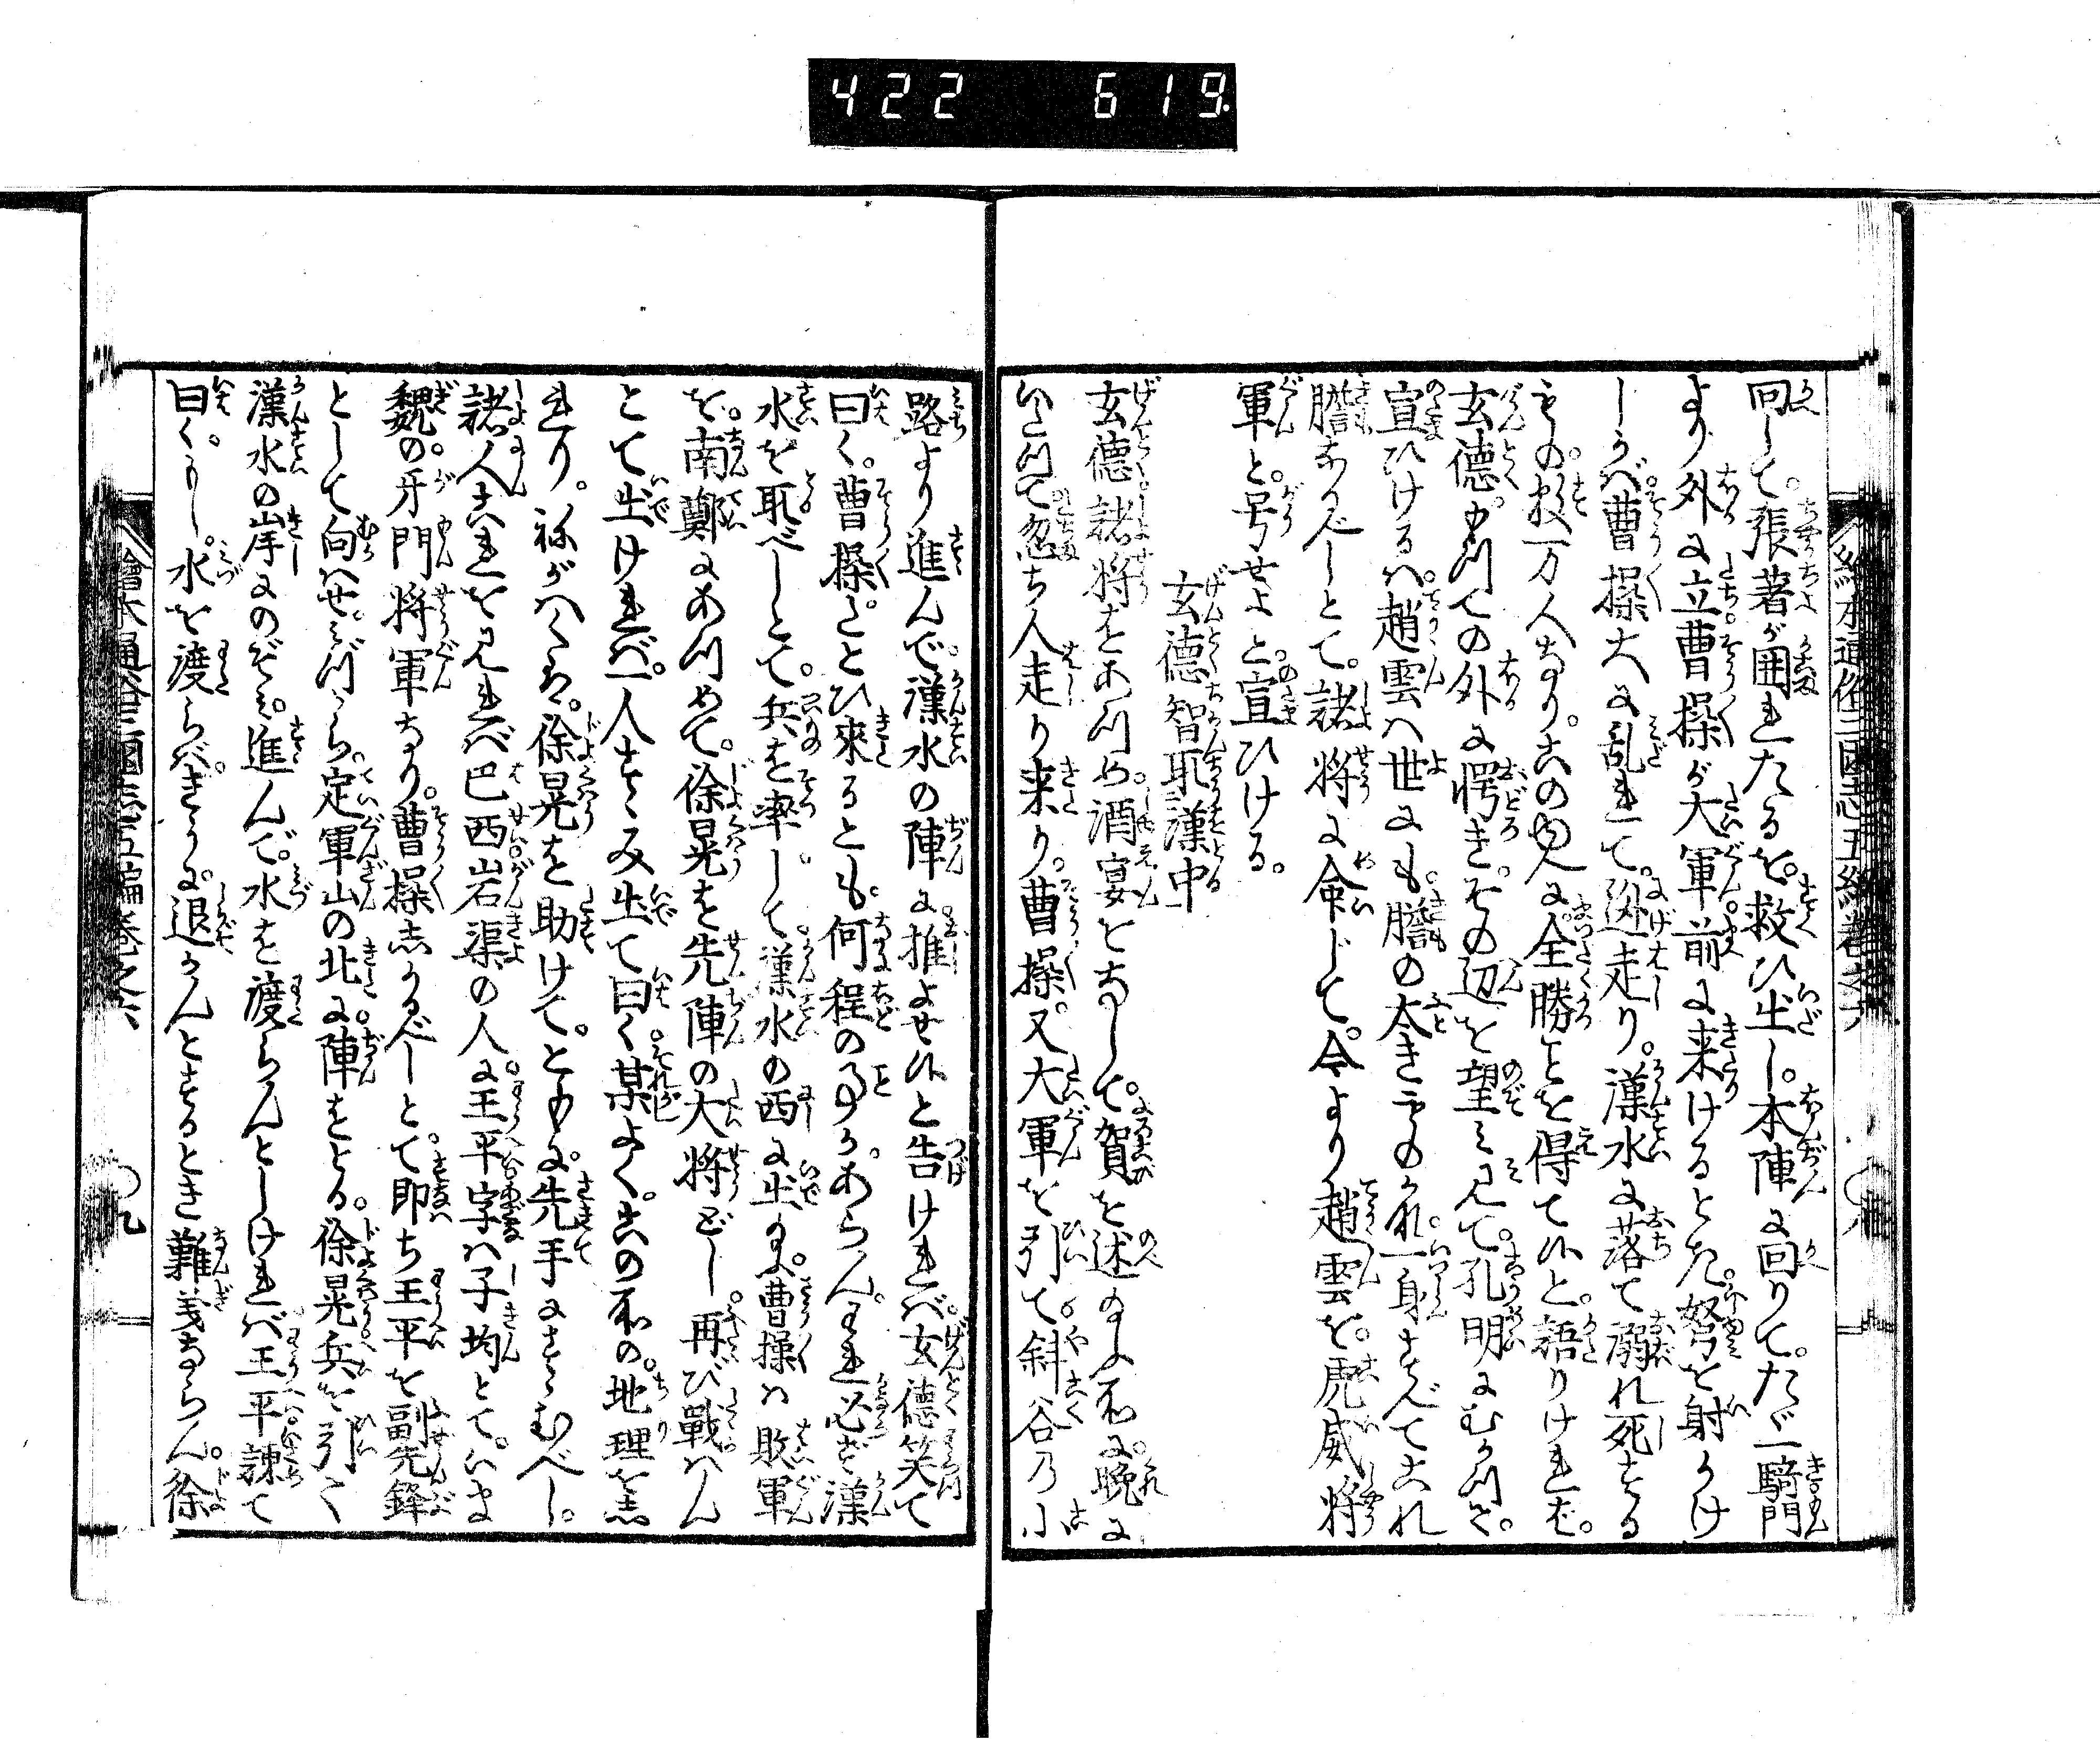 422 619
繪本通俗三國志五編巻之六
回して。張著が囲れたるを。救ひ出し。本陣に回りて。たゞ一騎門
より外に立曹操が大軍前に来けるとき。弩を射かけ
しかバ曹操大に乱れて。逃走り。漢水に落て溺れ死する
もの。数万人なり。この身に全勝を得て候と。語りければ。
玄徳もつての外に愕き。その辺を望み見て。孔明にむかつて。
宣ひけるハ。趙雲ハ世にも。膽の太きものかな。一身すべてこれ
膽なるべしとて。諸将に命じて。今より趙雲を。虎威将
軍と。号せよと。宣ひける。
玄徳智取漢中
玄徳諸将をあつめ。酒宴をなして。賀を述のよ所に。晩に
いたつて忽ち人走り来り。曹操。又大軍を引て。斜谷の小
路より進んで。漢水の陣に推よせ候と告けれバ。玄徳笑て
曰く。曹操。たとひ來るとも。何程の事かあらん。われ必ず漢
水を取べしとて。兵を率して。漢水の西に出らる。曹操ハ敗軍
を。南鄭にあつめて。徐晃を先陣の大将とし。再び戦ハん
とて出けれバ。一人すゝみ出て曰く。某よく。この所の。地理を志
れり。ねがハくハ。徐晃を助けて。ともに。先手にすゝむべし。
諸人これを見れバ巴西岩渠の人に。王平字ハ子均とて。いま
魏の牙門将軍なり。曹操志かるべしとて。即ち王平を副先鋒
として向ハせ。みづから。定軍山の北に。陣をとる。徐晃兵を引て
漢水の岸にのぞみ。進んで。水を渡らんとしけれバ王平諌て
曰く。もし。水を渡らバ。きうに。退かんとするとき難義ならん。徐
繪本通俗三國志五編巻之六
九